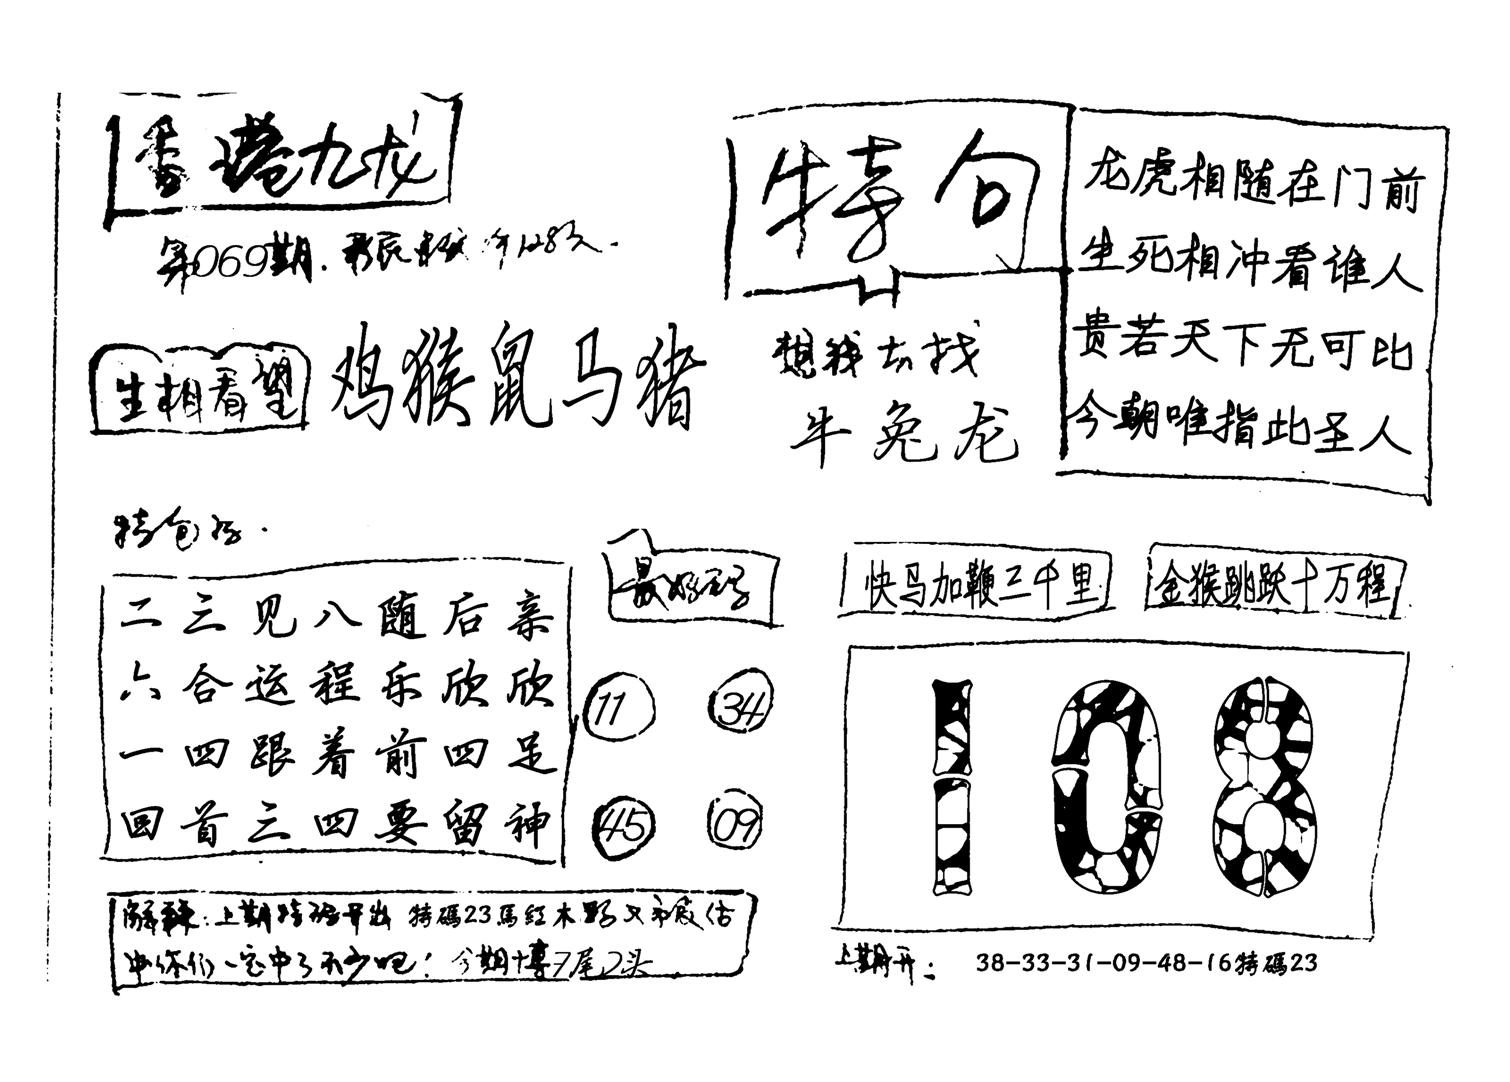 香港九龙
第069期.
生相看望
鸡猴鼠马猪
特句
想我去找
牛兔龙
龙虎相随在门前
生死相冲看谁人
贵若天下无可比
今朝唯指此圣人
特包
二三见八随后亲
六合运程乐欣欣
一四跟着前四足
回首三四要留神
最好码
11 34
45 09
快马加鞭三千里
金猴跳跃十万程
108
解释:上期特码开出 特碼23馬红木 又估
中你们一定中了不少吧! 今期十博7尾2头
上期开: 38-33-31-09-48-16特碼23